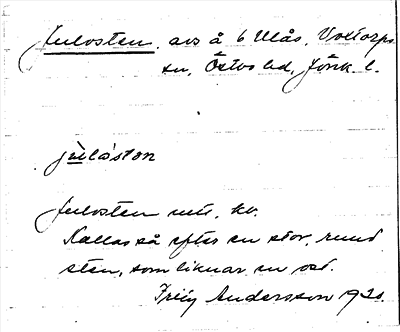 Julosten, avs å 6 Ulås, Voxtorps
sn, Östbo hd, Jönk. l.
jùlóston
Julosten
Kallas så efter en stor, rund
sten, som liknar en ost.
Andersson 1930.